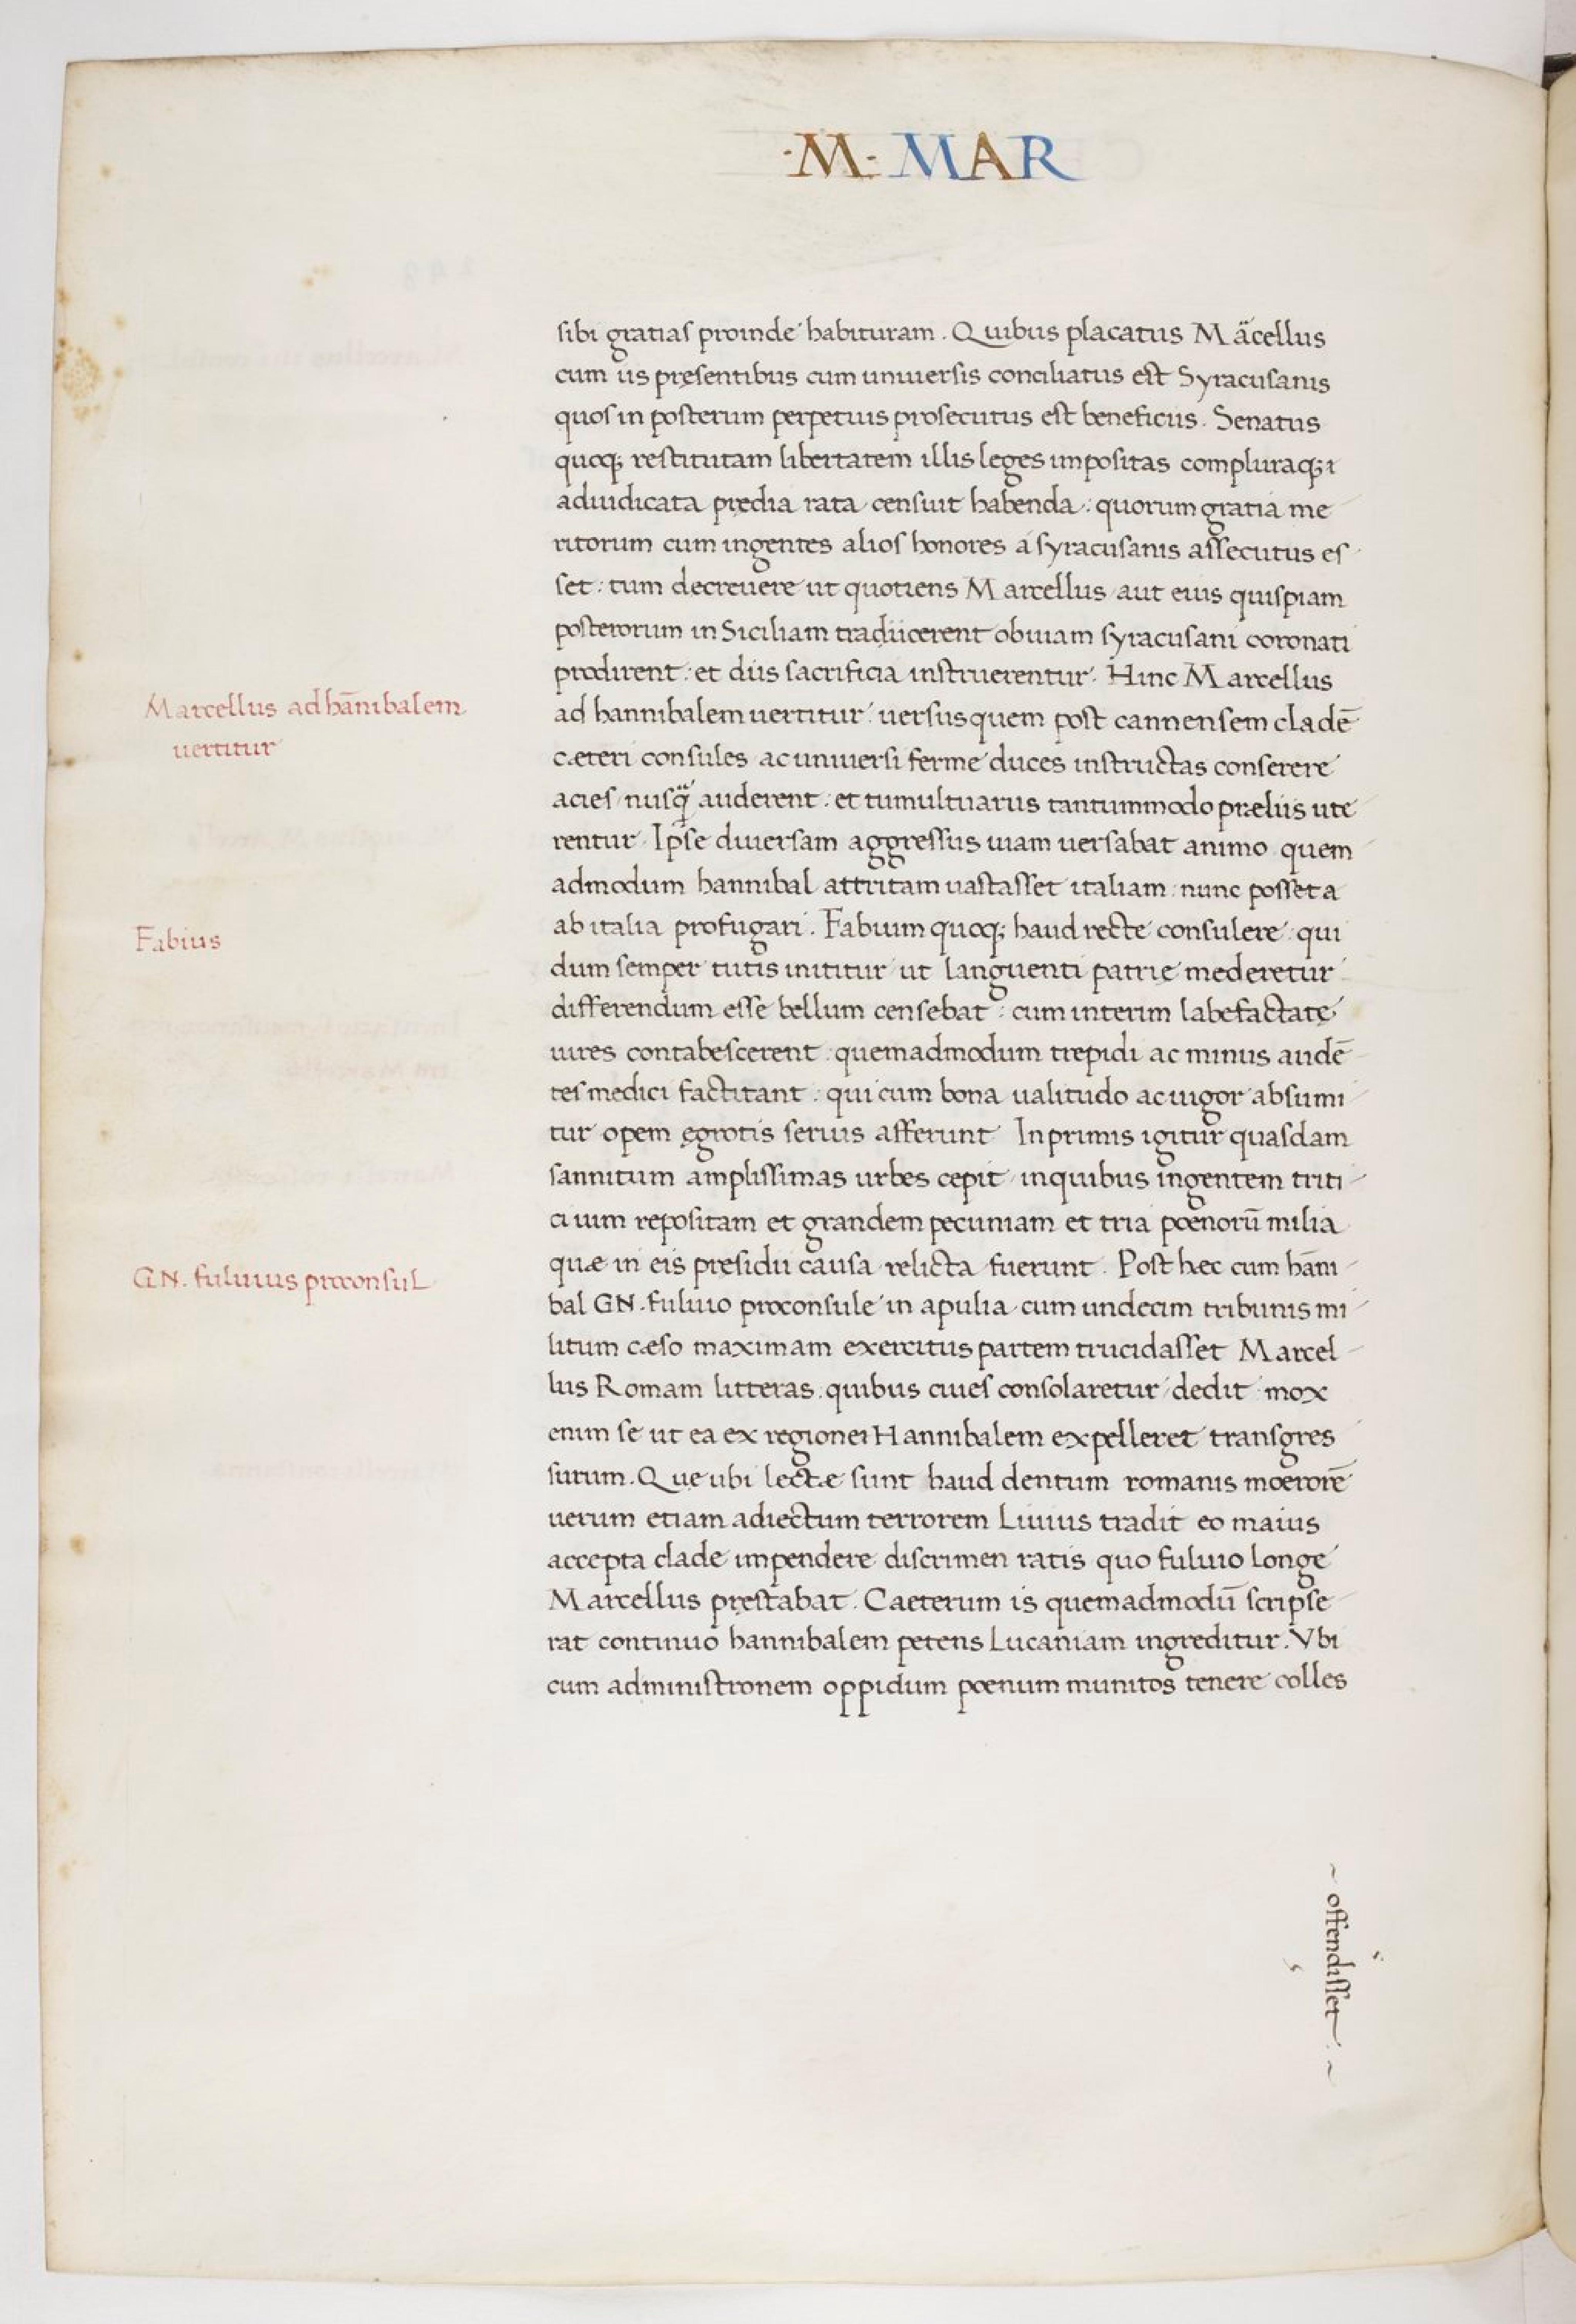 ·M· MAR
sibi gratias proinde habituram. Quibus placatus Macellus
cum iis presentibus cum uniuersis conciliatus est Syracusanis
quos in posterum perpetuis prosecutus est beneficiis. Senatus
quoq; restitutam libertatem illis leges impositas compluraq;
adiudicata prędia rata censuit habenda: quorum gratia me
ritorum cum ingentes alios honores a syracusanis assecutus es
set: tum decreuere ut quotiens Marcellus aut eius quispiam
posterorum in Siciliam traducerent obuiam syracusani coronati
prodirent: et diis sacrificia instruerentur. Hinc Marcellus
Marcellus ad hānibalem
uertitur
ad hannibalem uertitur: uersus quem post cannensem cladē
cæteri consules ac uniuersi ferme duces instructas conserere
acies nusq̃ auderent: et tumultuarus tantummodo præliis ute
rentur. Ipse diuersam aggressus uiam uersabat animo quem
admodum hannibal attritam uastasset italiam: nunc posset a
ab italia profugari. Fabium quoq; haud recte consulere: qui
Fabius
dum semper tutis inititur ut languenti patrię mederetur
differendum esse bellum censebat: cum interim labefactatę
uires contabescerent: quemadmodum trepidi ac minus audē
tes medici factitant: qui cum bona ualitudo ac uigor absumi
tur opem ęgrotis serius afferunt. Inprimis igitur quasdam
sannitum amplissimas urbes cepit in quibus ingentem triti
ci uim repositam et grandem pecuniam et tria poenorū milia
quæ in eis presidii causa relicta fuerunt. Post hæc cum hāni
GN. fuluius proconsul
bal GN. fuluio proconsule in apulia cum undecim tribunis mi
litum cæso maximam exercitus partem trucidasset Marcel
lus Romam litteras: quibus ciues consolaretur dedit mox
enim se ut ea ex regionei Hannibalem expelleret transgres
surum. Que ubi lectæ sunt haud dentum romanis moerorē
uerum etiam adiectum terrorem Liuius tradit eo maius
accepta clade impendere discrimen ratis quo fuluio longe
Marcellus pręstabat. Caeterum is quemadmodū scripse
rat continuo hannibalem petens Lucaniam ingreditur. Vbi
cum administronem oppidum poenum munitos tenere colles
~ offendisset ~